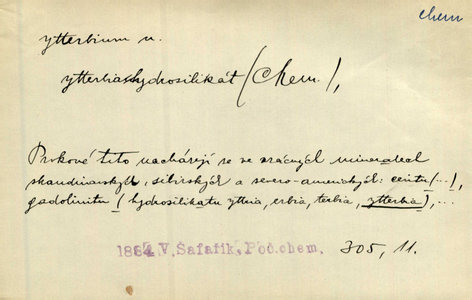 chem
ytterbium n.
ytterbiahydrosilikát (Chem.),
Prvkové tito nacházejí se ve vzácných mineralech
skandinavských, sibirských a severo-amerických: ceritu (...),
gadolinitu (hydrosilikatu yttria, erbia, terbia, ytterbia),...
1884 V. Šafařík, Poč.chem. 305, 11.